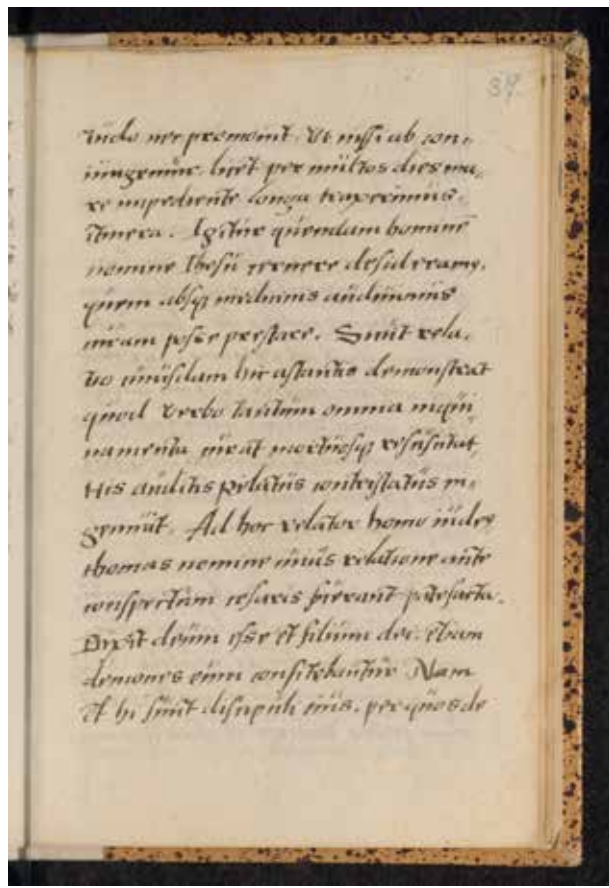 37.
nec
Ut missi ab con,,
licet per multos dies ma,,
re impediente longa traxerimus.
itinera. Igitur quendam hominē
nomine Ihesū cernere desideramꝰ.
quem absqꝫ medicinis audiuimus
curam posse prestare. Sicut rela,
tio cuiusdam hic astantis demonstrat
quod verbo tantum omnia
curat mortuosqꝫ resuscitat,
His auditis pilatus contristatus in,
gemuit. Ad hoc relator homo iudeꝰ
thomas nomine cuius relatione ante
conspectum cesaris fuerant patefacta.
Dixit deum esse et filium dei. etiam
demones eum confitebantur Nam
Et hi sunt discipuli eius. per quos de